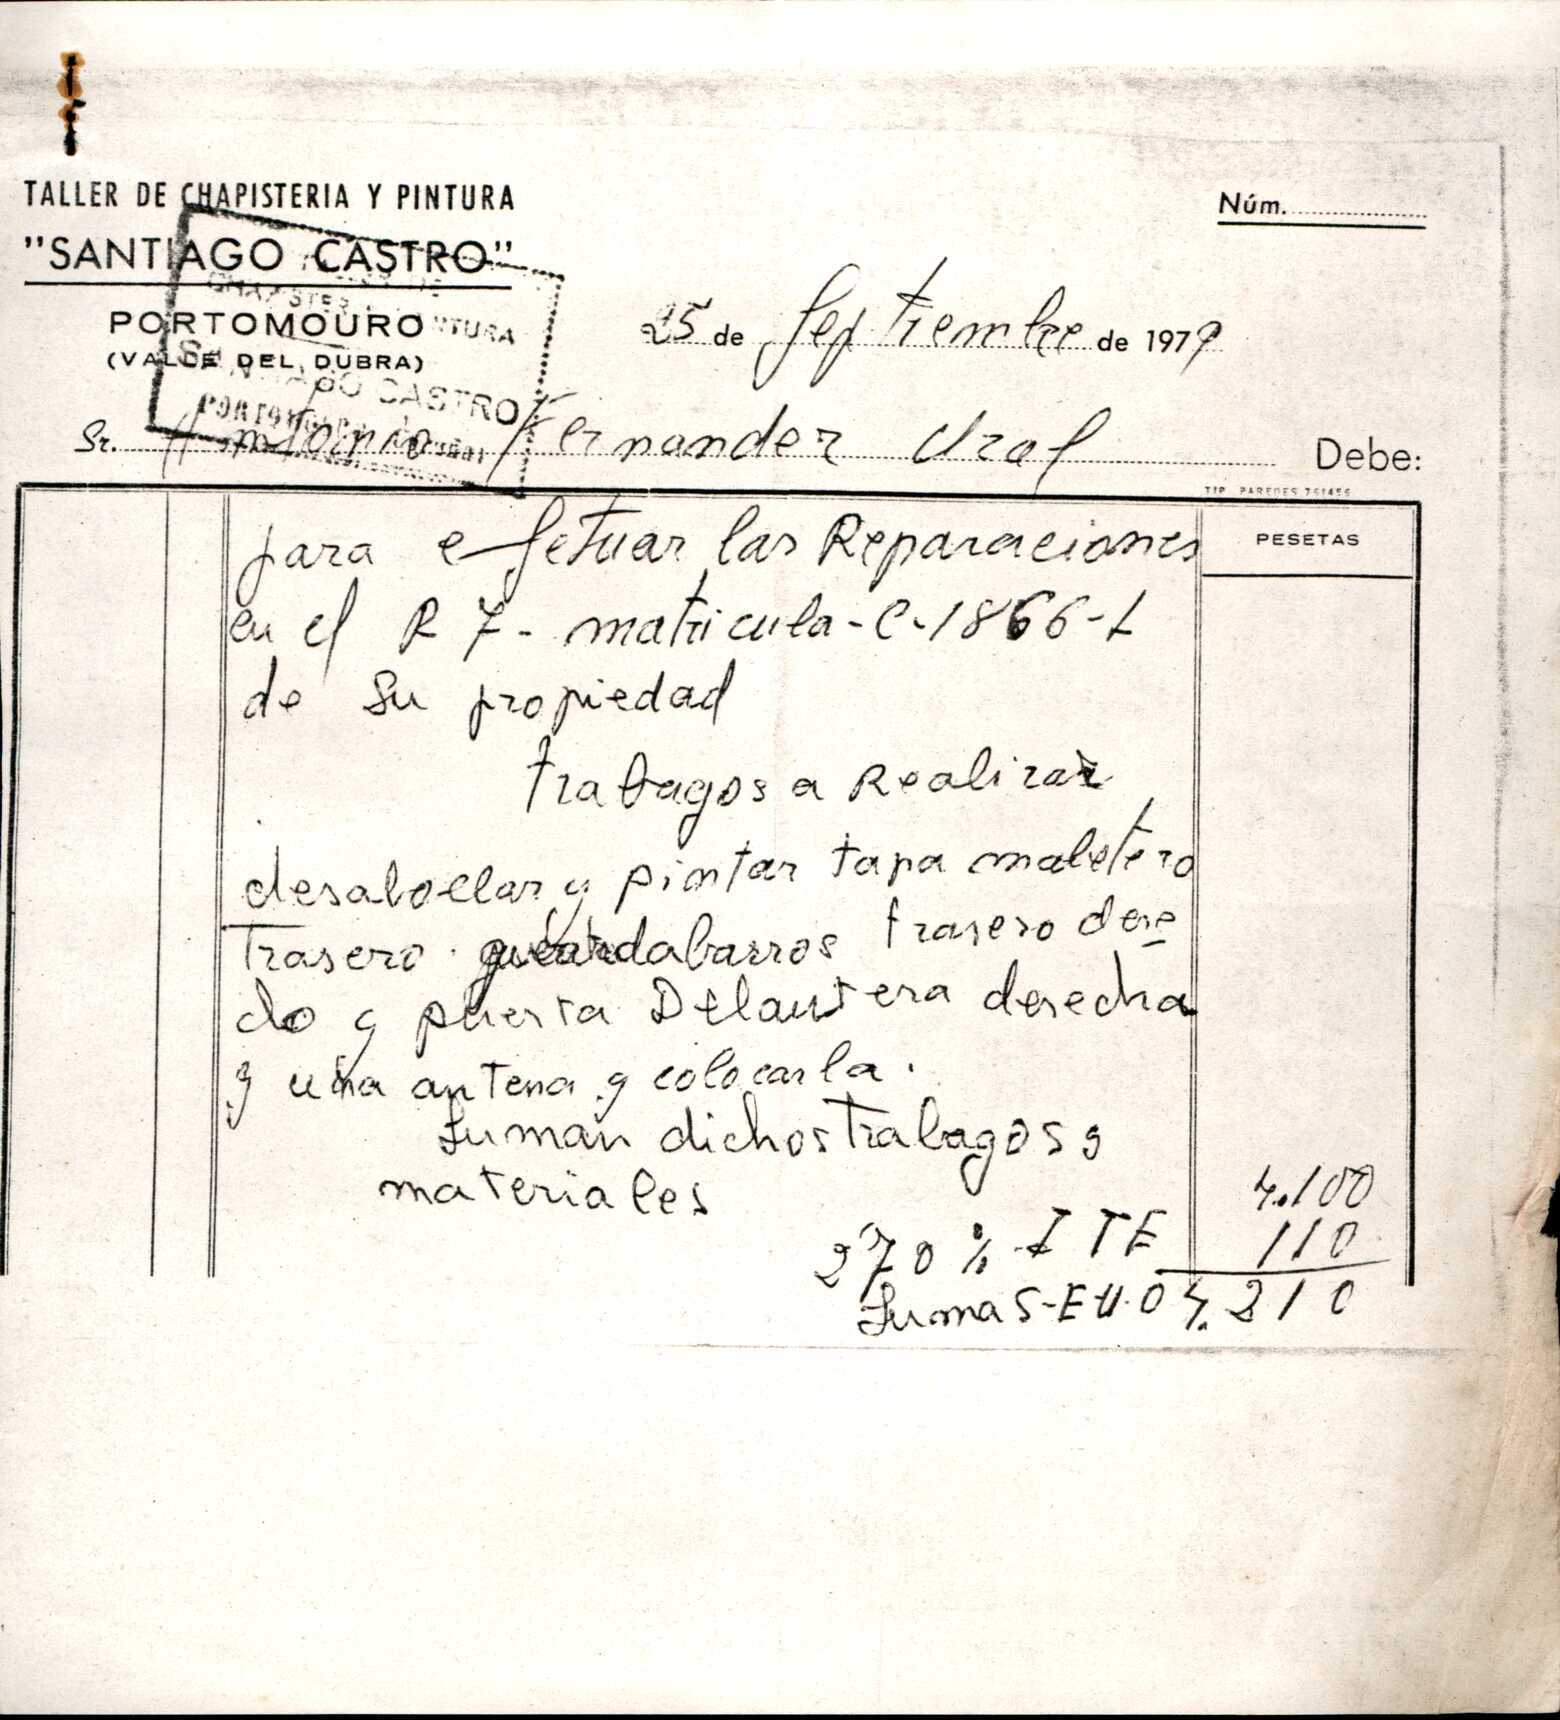 TALLER DE CHAPISTERIA Y PINTURA
"SANTIAGO CASTRO"
PORTOMOURO
(VALLE DEL DUBRA)
Núm.
PINTURA
CASTRO
25 de Septiembre de 1979
Sr. Antonio Fernandez Debe:
TIP. PAREDES 751456
PESETAS
para efetuar las Reparaciones
en el R 7 - matricula - C-1866-L
de su propiedad
trabagos a Realizar
desabollar y pintar tapa maletero
trasero guardabarros trasero dere
cho y puerta Delantera derecha
y una antena y colocarla.
Suman dichos trabagos y
materiales 4.100
270 % I T E 110
Suma S-E-U-O 4.210